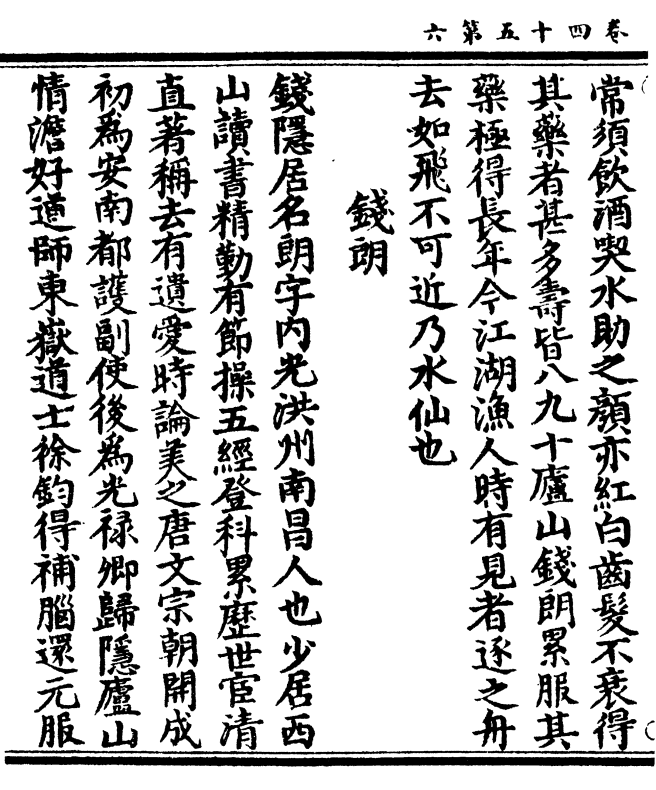 卷四十五第六
常須飲酒喫水助之顏亦紅白齒髮不衰得
其藥者甚多壽皆八九十廬山錢朗累服其
藥極得長年今江湖漁人時有見者逐之舟
去如飛不可近乃水仙也
錢朗
錢隱居名朗字內光洪州南昌人也少居西
山讀書精勤有節操五經登科累歷世宦清
直著稱去有遺愛時論美之唐文宗朝開成
初為安南都護副使後為光祿卿歸隱廬山
情澹好道師東嶽道士徐鈞得補腦還元服